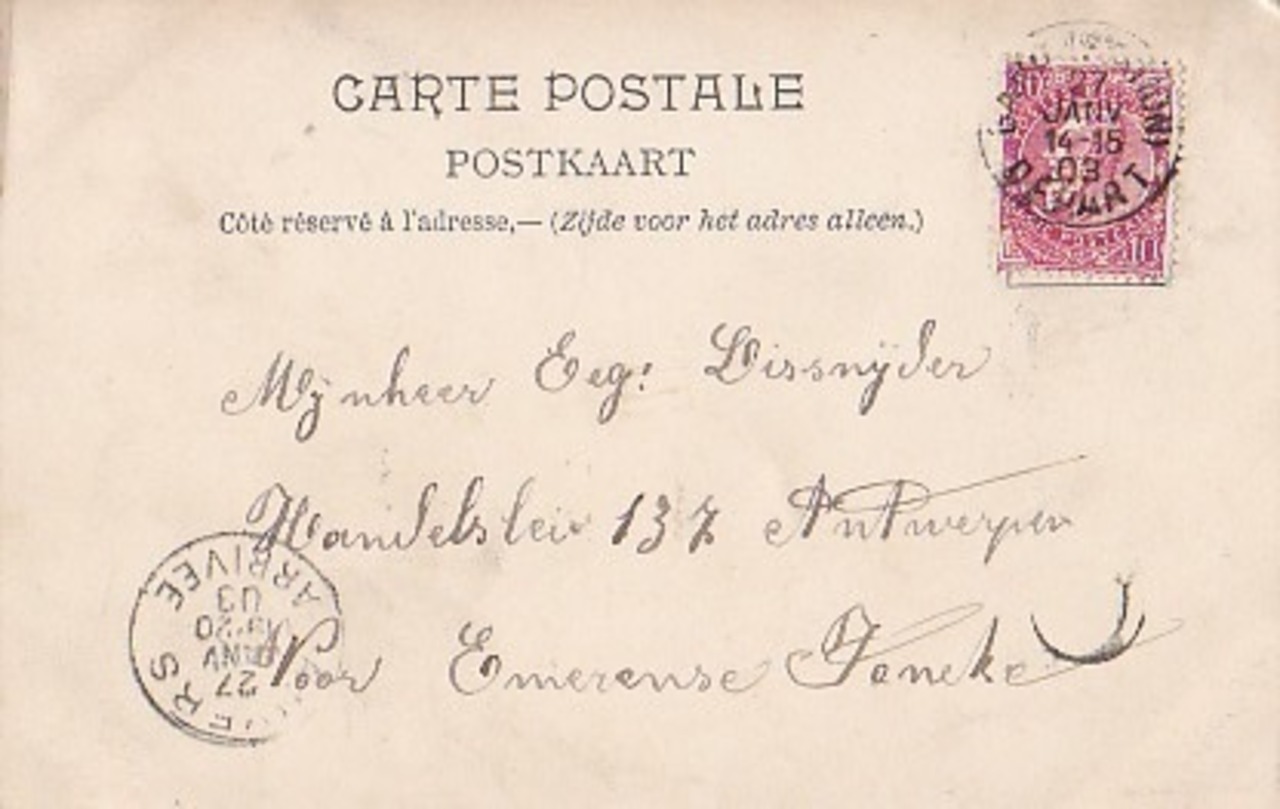 CARTE POSTALE
POSTKAART
Côté réservé à l'adresse,— (Zijde voor het adres alleen.)
27
JANV
14-15
03
DEPART
10
Mÿnheer Eeg: Lissnÿder
Handelslei 137 Antwerpen
Voor Emerense Janeke
ARRIVEE
03
27